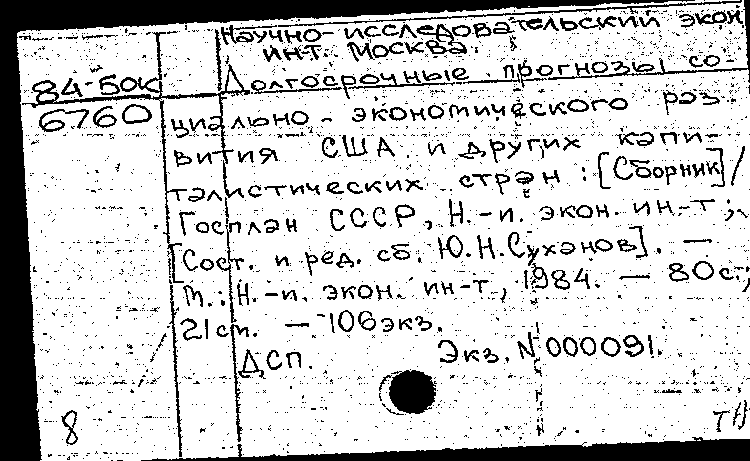 Научно-исследовательский экон.
ин-т. Москва.
84-5ок Долгосрочные прогнозы со-
6760 циально-экономического раз-
вития США и других капи-
талистических стран: [Сборник] /
Госплан СССР, Н.-и. экон. ин-т;
[Сост. и ред. сб. Ю.Н.Суханов]. —
М.: Н.-и. экон. ин-т, 1984. — 80с.;
21см. — 106экз.
ДСП. Экз. N 000091.
8